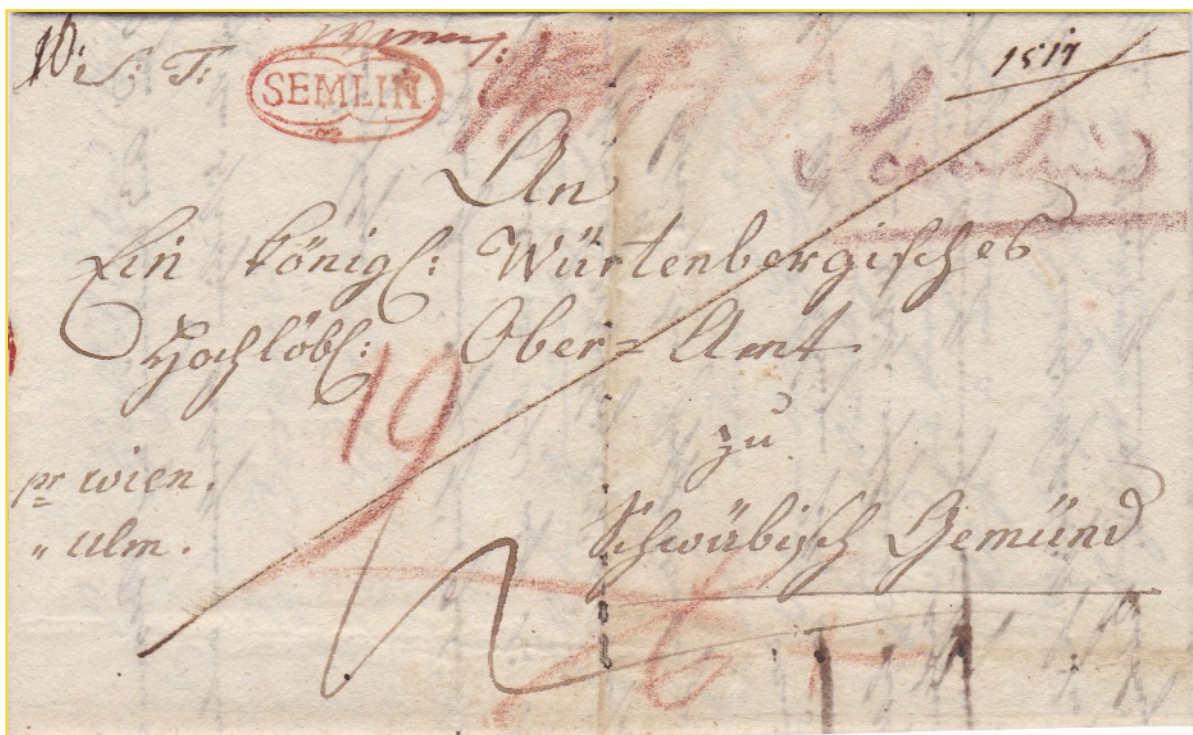 S: T:
SEMLIN
1517
Semlin
An
Ein königl: Würtenbergisches
Hochlöbl: Ober=Amt
19
zu
pr wien.
" Ulm.
Schwäbisch Gemünd